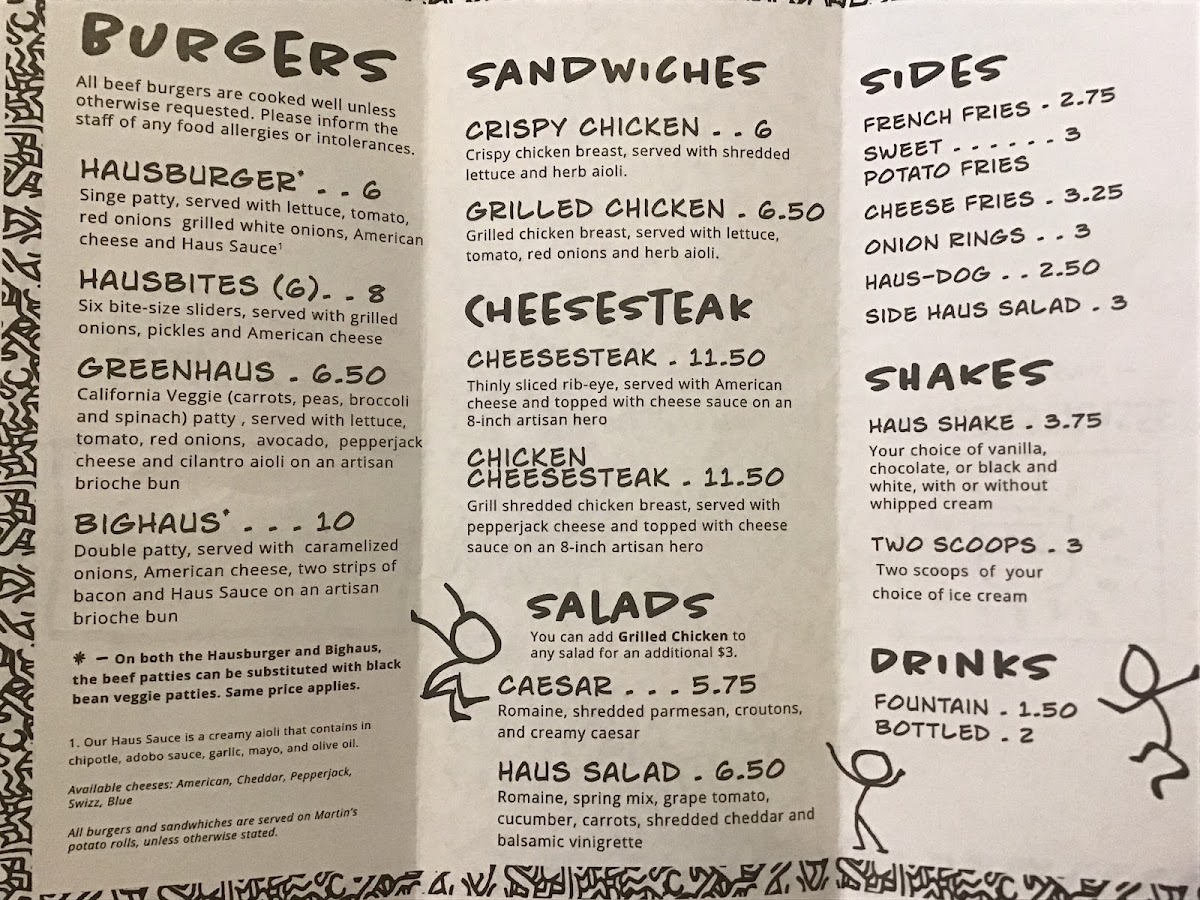 BURGERS
All beef burgers are cooked well unless
otherwise requested. Please inform the
staff of any food allergies or intolerances.
HAUSBURGER* - - 6
Singe patty, served with lettuce, tomato,
red onions grilled white onions, American
cheese and Haus Sauce¹
HAUSBITES (6). - 8
Six bite-size sliders, served with grilled
onions, pickles and American cheese
GREENHAUS - 6.50
California Veggie (carrots, peas, broccoli
and spinach) patty , served with lettuce,
tomato, red onions, avocado, pepperjack
cheese and cilantro aioli on an artisan
brioche bun
BIGHAUS* - - - 10
Double patty, served with caramelized
onions, American cheese, two strips of
bacon and Haus Sauce on an artisan
brioche bun
* — On both the Hausburger and Bighaus,
the beef patties can be substituted with black
bean veggie patties. Same price applies.
1. Our Haus Sauce is a creamy aioli that contains in
chipotle, adobo sauce, garlic, mayo, and olive oil.
Available cheeses: American, Cheddar, Pepperjack,
Swizz, Blue
All burgers and sandwhiches are served on Martin's
potato rolls, unless otherwise stated.
SANDWICHES
CRISPY CHICKEN - - 6
Crispy chicken breast, served with shredded
lettuce and herb aioli.
GRILLED CHICKEN - 6.50
Grilled chicken breast, served with lettuce,
tomato, red onions and herb aioli.
CHEESESTEAK
CHEESESTEAK - 11.50
Thinly sliced rib-eye, served with American
cheese and topped with cheese sauce on an
8-inch artisan hero
CHICKEN
CHEESESTEAK - 11.50
Grill shredded chicken breast, served with
pepperjack cheese and topped with cheese
sauce on an 8-inch artisan hero
SALADS
You can add Grilled Chicken to
any salad for an additional $3.
CAESAR - - - 5.75
Romaine, shredded parmesan, croutons,
and creamy caesar
HAUS SALAD - 6.50
Romaine, spring mix, grape tomato,
cucumber, carrots, shredded cheddar and
balsamic vinigrette
SIDES
FRENCH FRIES - 2.75
SWEET - - - - - - 3
POTATO FRIES
CHEESE FRIES - 3.25
ONION RINGS - - 3
HAUS-DOG - - 2.50
SIDE HAUS SALAD - 3
SHAKES
HAUS SHAKE - 3.75
Your choice of vanilla,
chocolate, or black and
white, with or without
whipped cream
TWO SCOOPS - 3
Two scoops of your
choice of ice cream
DRINKS
FOUNTAIN - 1.50
BOTTLED - 2